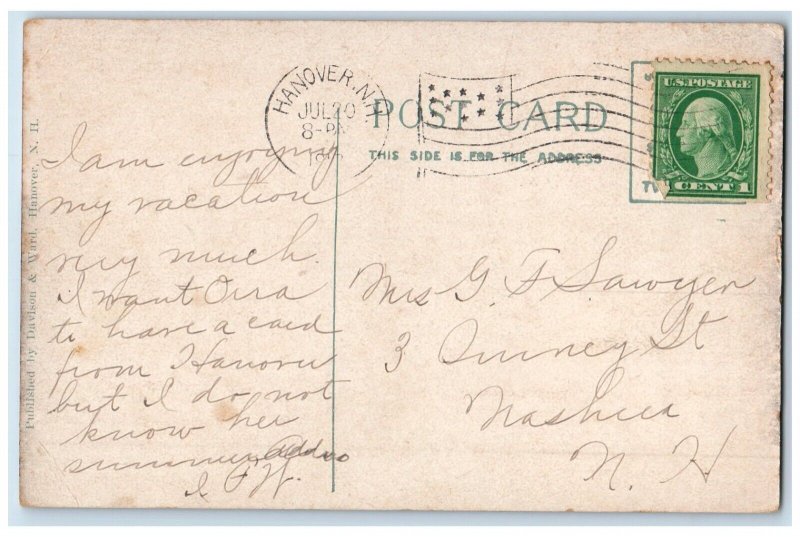 Published by Davison & Ward, Hanover, N. H.
HANOVER, N.H.
JUL 20
8-PM
POST CARD
THIS SIDE IS FOR THE ADDRESS
U.S. POSTAGE
1 CENT 1
I am enjoying
my vacation
very much.
I want Orra
to have a card
from Hanover
but I do not
know her
summer address
Mrs G. F. Sawyer
3 Quincy St
Nashua
N. H